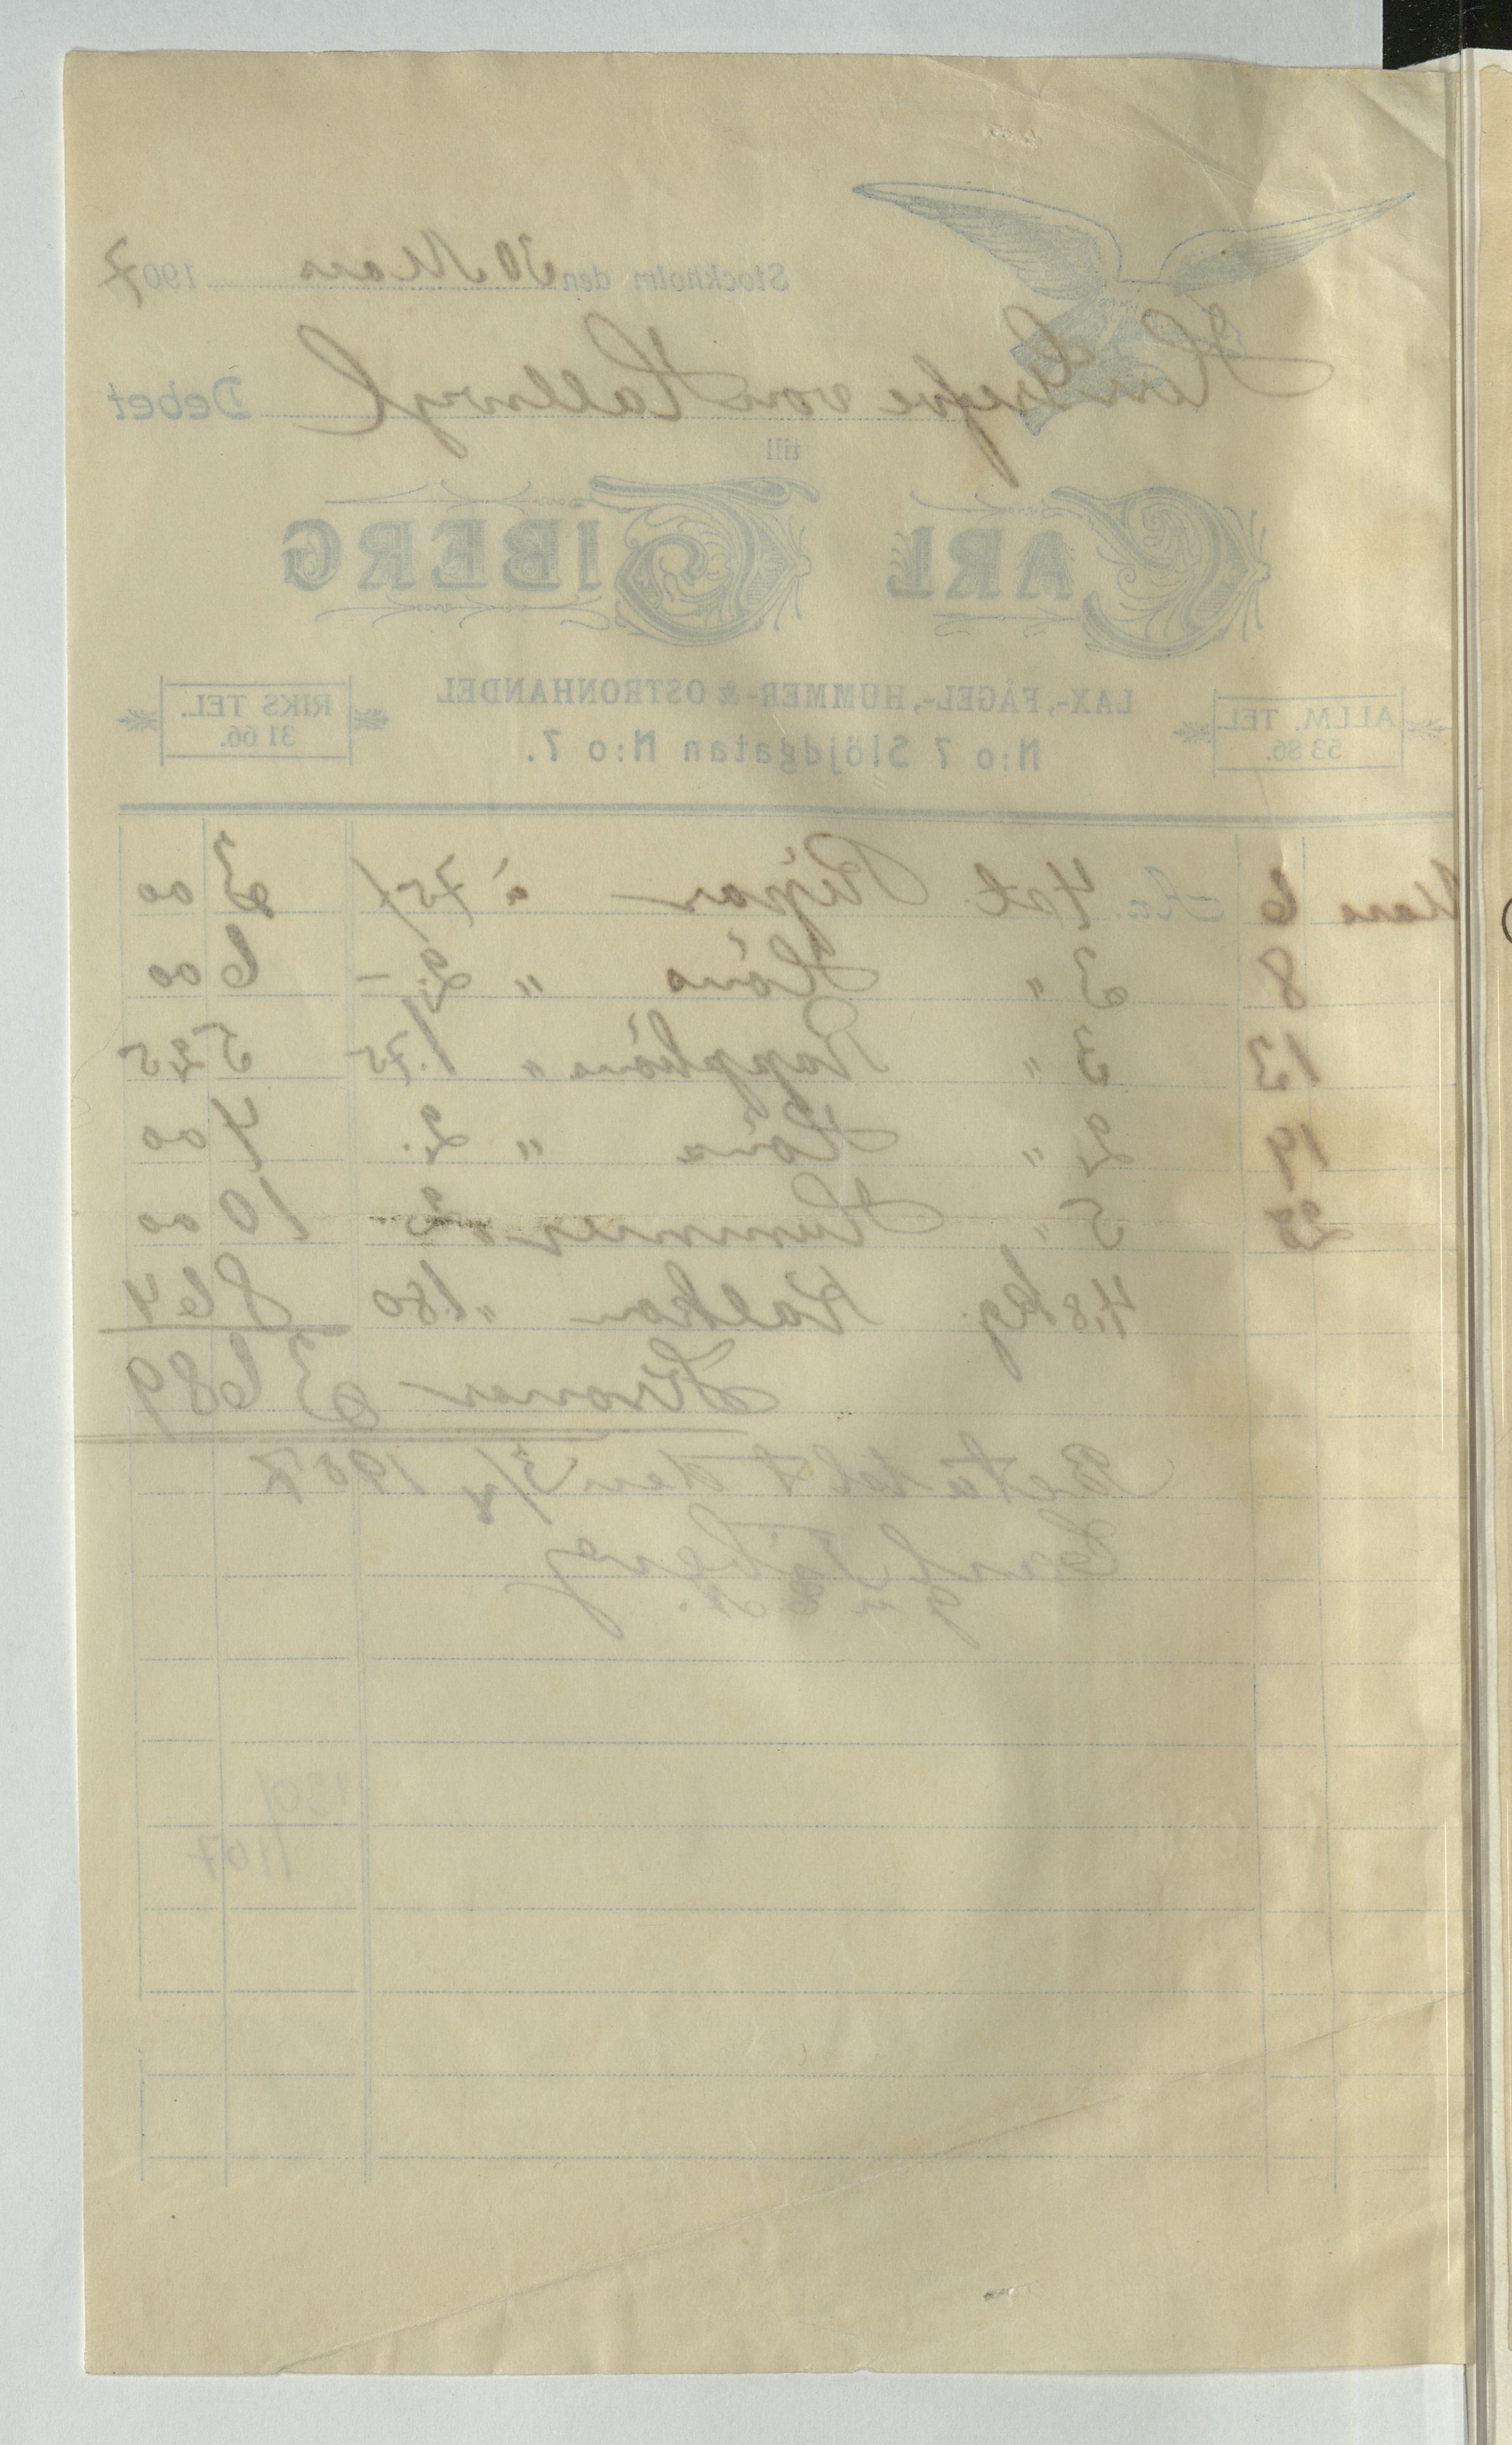 Stockholm den 30 Mars 1907
Herr Grefve von Hallwyl Debet
till
CARL TIBERG
LAX-, FÅGEL-, HUMMER- & OSTRONHANDEL
ALLM. TEL. 53 86.
N:o 7 Slöjdgatan N:o 7.
RIKS TEL. 31 66.
Mars 6 4 st. Ripor à 75 3 00
8 3 " Höns " 2.- 6 00
13 3 " Rapphöns " 1.75 5 25
19 2 " Höns " 2. 4 00
28 5 " Hummer 2 10 00
4,8 kg. Kalkon " 1.80 8 64
Kronor 36 89
Betaldt den 3/4 1907
Carl Tiberg
1301
1107